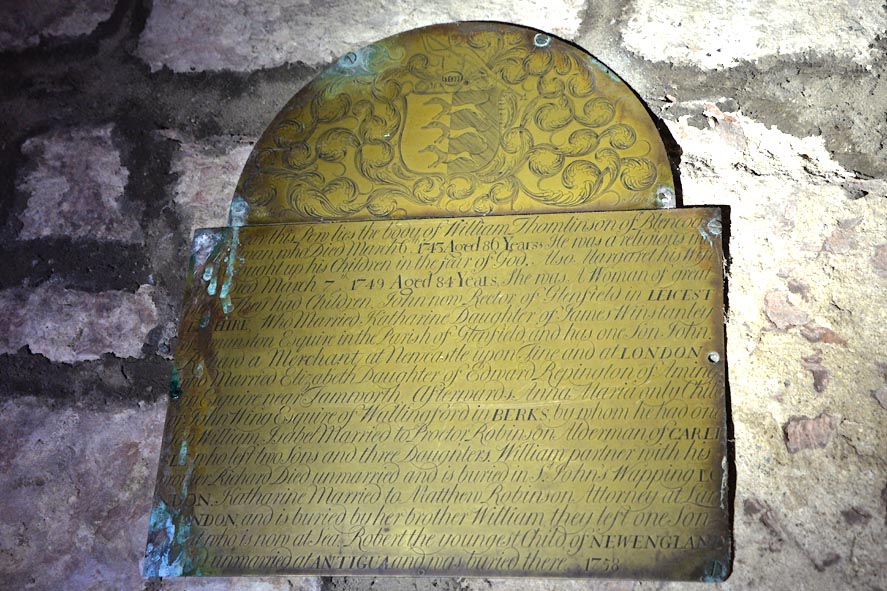 this Pew lies the body of William Thomlinson of Blencog
who Died March 6, 1743 Aged 86 Years. He was a religious
up his Children in the fear of God. Also. Margaret his
March 7 1749 Aged 84 Years. She was A Woman of great
had Children, John now Rector of Glenfield in LEICEST
HIRE, Who Married, Katharine Daughter of James Winstanley
Esquire in the Parish of and has one Son, John
a Merchant at Newcastle upon Tine and at LONDON
Married Elizabeth Daughter of Edward Repington of
near Tamworth. Afterwards, Anna Maria only
King Esquire of Wallingford in BERKS, by whom he had one
William, Isabel Married to Proctor Robinson, Alderman of CARLI
left two Sons and three Daughters, William partner with his
Richard Died unmarried and is buried in St. John's Wapping LO
NDON, Katharine Married to Matthew Robinson Attorney at Law
LONDON and is buried by her brother William they left one Son
who is now at Sea. Robert the youngest Child of NEWENGLAND
unmarried at ANTIGUA and was buried there, 1738